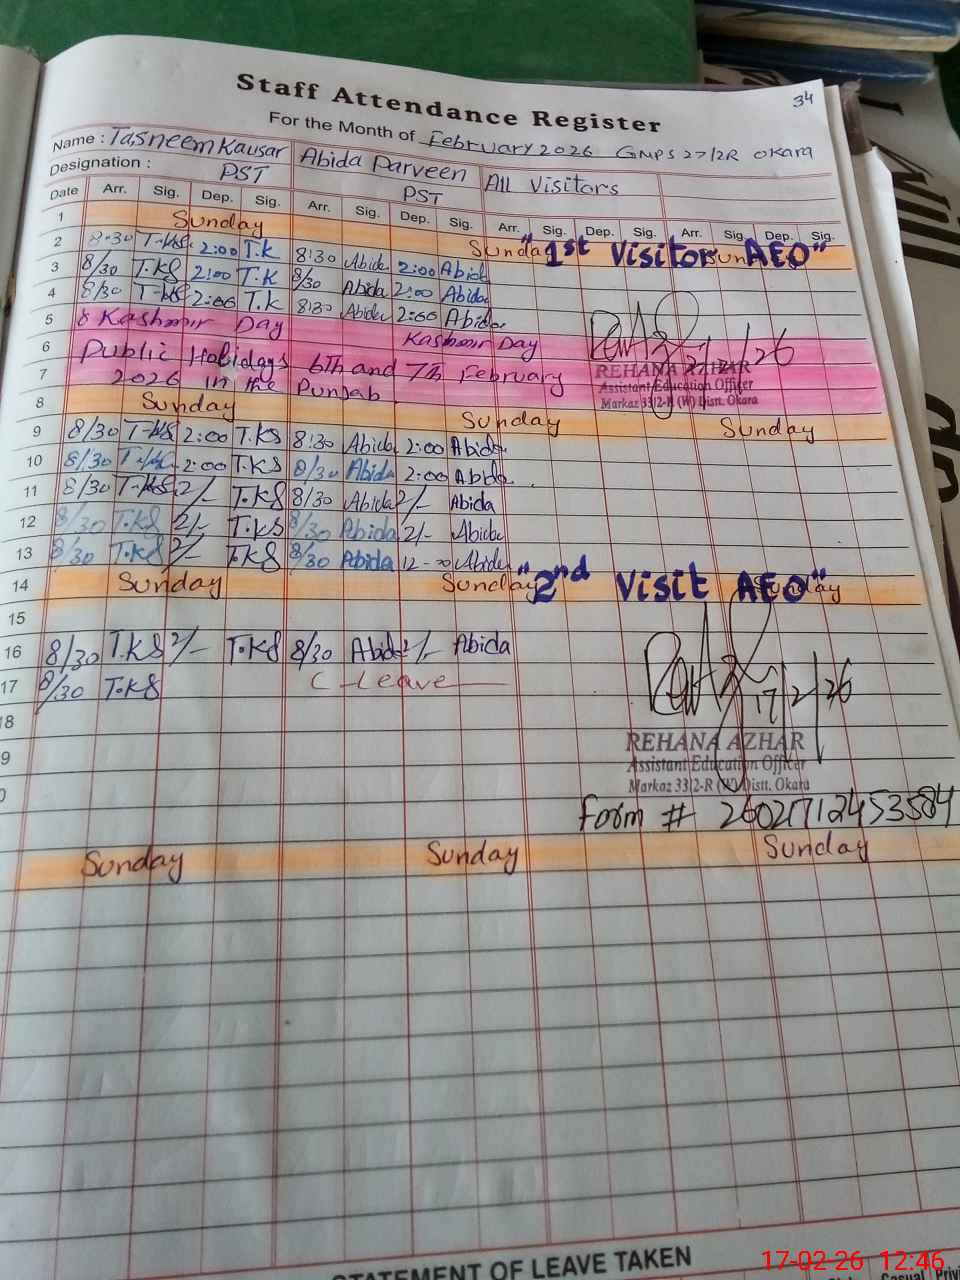 34
Staff Attendance Register
For the Month of February 2026 GMPS 27/2R Okara
Name : Tasneem Kausar Abida Parveen All Visitors
Designation : PST PST
Date Arr. Sig. Dep. Sig. Arr. Sig. Dep. Sig. Arr. Sig. Dep. Sig. Arr. Sig. Dep. Sig.
1 Sunday Sunday Sunday
"1st Visitor AEO"
2 8:30 2:00 T.K 8:30 Abida 2:00 Abida
3 8/30 T.KS 2:00 T.K 8/30 Abida 2:00 Abida
4 8/30 T-KS 2:00 T.K 8:30 Abida 2:00 Abida
5 Kashmir Day Kashmir Day
6 Public Holidays 6th and 7th February
7 2026 in the Punjab
REHANA AZHAR
Assistant Education Officer
Markaz 33/2-R (W) Distt. Okara
8 Sunday Sunday Sunday
9 8/30 T-KS 2:00 T.KS 8:30 Abida 2:00 Abida
10 8/30 2:00 T.KS 8/30 Abida 2:00 Abida
11 8/30 T-KS 2/- T.KS 8/30 Abida 2/- Abida
12 8/30 T.KS 2/- T.KS 8/30 Abida 2/- Abida
13 8/30 T.KS 2/- T.KS 8/30 Abida 12-00 Abida
14 Sunday Sunday Sunday
"2nd Visit AEO"
15
16 8/30 T.KS 2/- T.KS 8/30 Abida 2/- Abida
17 8/30 T.KS C-Leave
17/2/26
18
REHANA AZHAR
Assistant Education Officer
Markaz 33/2-R (W) Distt. Okara
9
0
Form # 26021712453584
Sunday Sunday Sunday
STATEMENT OF LEAVE TAKEN
Casual
17-02-26 12:46